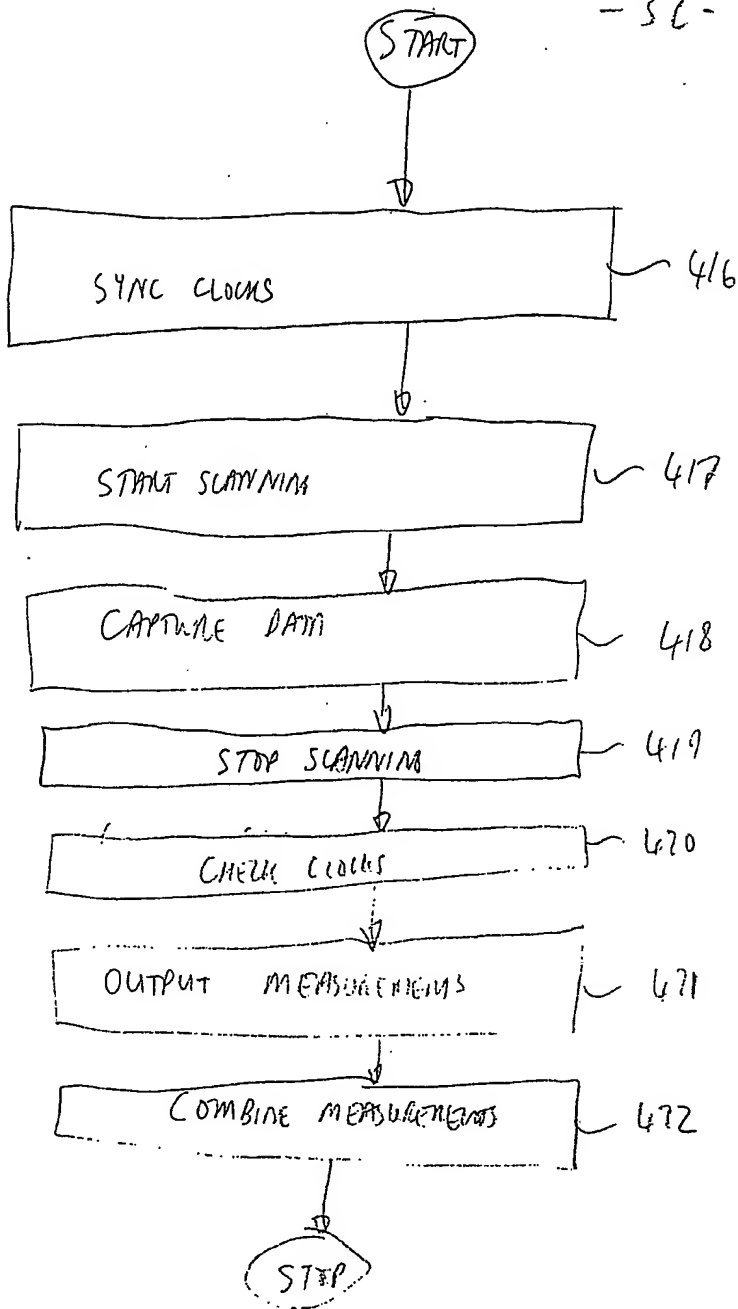 - 56 -
START
SYNC CLOCKS
416
START SCANNING
417
CAPTURE DATA
418
STOP SCANNING
419
CHECK CLOCKS
420
OUTPUT MEASUREMENTS
421
COMBINE MEASUREMENTS
422
STOP